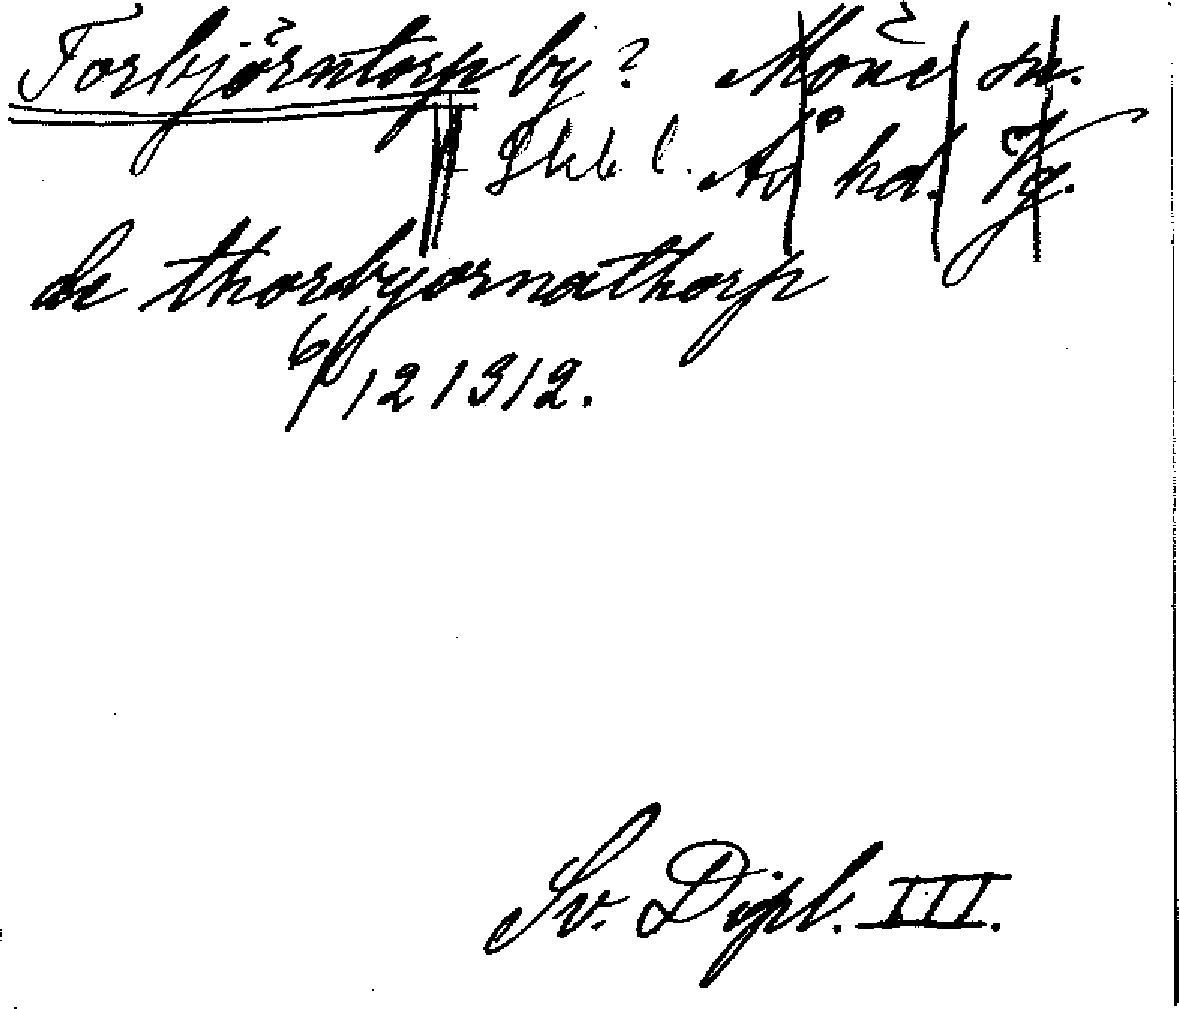 Torbjörntorp by? Mone sn.
Skbl. Ås hd. Vg.
de thorbyornathorp
6/12 1312.
Sv. Dipl. III.